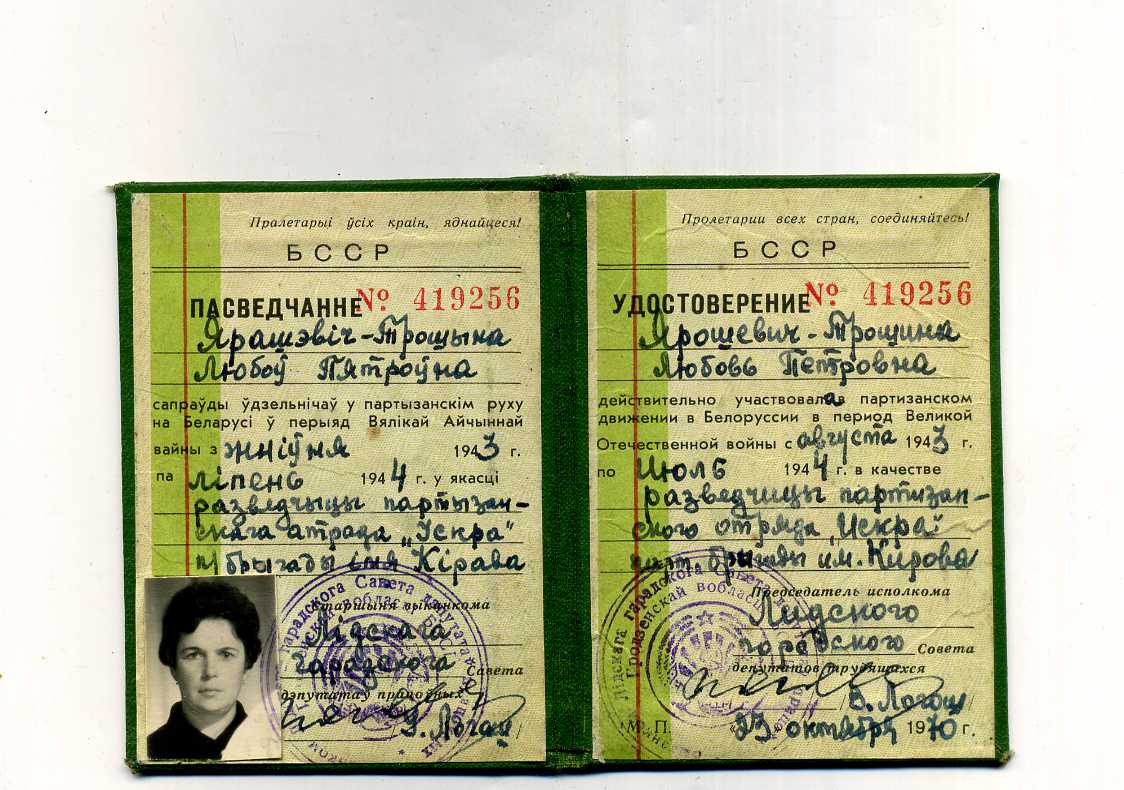 Пралетарыі ўсіх краін, яднайцеся!
БССР
ПАСВЕДЧАННЕ № 419256
Ярашэвіч-Трошына
Любоў Пятроўна
сапраўды ўдзельнічаў у партызанскім руху
на Беларусі ў перыяд Вялікай Айчыннай
вайны з жніўня 1943 г.
па ліпень 1944 г. у якасці
разведчыцы партызан-
скага атрада „Іскра"
п/брыгады імя Кірава
Старшыня выканкома
Лідскага
гарадскога Савета
дэпутатаў працоўных
Пролетарии всех стран, соединяйтесь!
БССР
УДОСТОВЕРЕНИЕ № 419256
Ярошевич-Трощина
Любовь Петровна
действительно участвовала в партизанском
движении в Белоруссии в период Великой
Отечественной войны с августа 1943 г.
по июль 1944 г. в качестве
разведчицы партизан-
ского отряда „Искра"
парт бригады им. Кирова
Председатель исполкома
Лидского
городского Совета
депутатов трудящихся
М. П. 23 октября 1970 г.